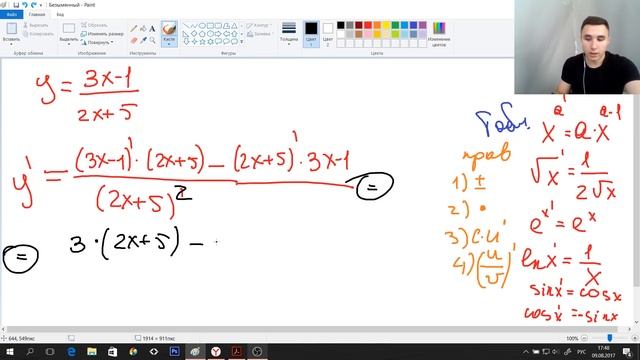 Безымянный - Paint
Файл Главная Вид
Вставить Вырезать Копировать Выделить Изменить размер Повернуть Кисти Контур Заливка Толщина Цвет 1 Цвет 2
Буфер обмена Изображение Инструменты Фигуры
y = (3x-1)/(2x+5)
y' = ((3x-1)'·(2x+5) - (2x+5)'·3x-1)/(2x+5)² =
= 3·(2x+5) -
Табл.
x^a' = a·x^(a-1)
прав
√x' = 1/(2√x)
1) ±
2) •
e^x' = e^x
3) c·u'
4) (u/v)'
lnx' = 1/x
sinx' = cosx
cosx' = -sinx
644, 549пкс
1914 × 911пкс
100%
РУС
17:48
09.08.2017